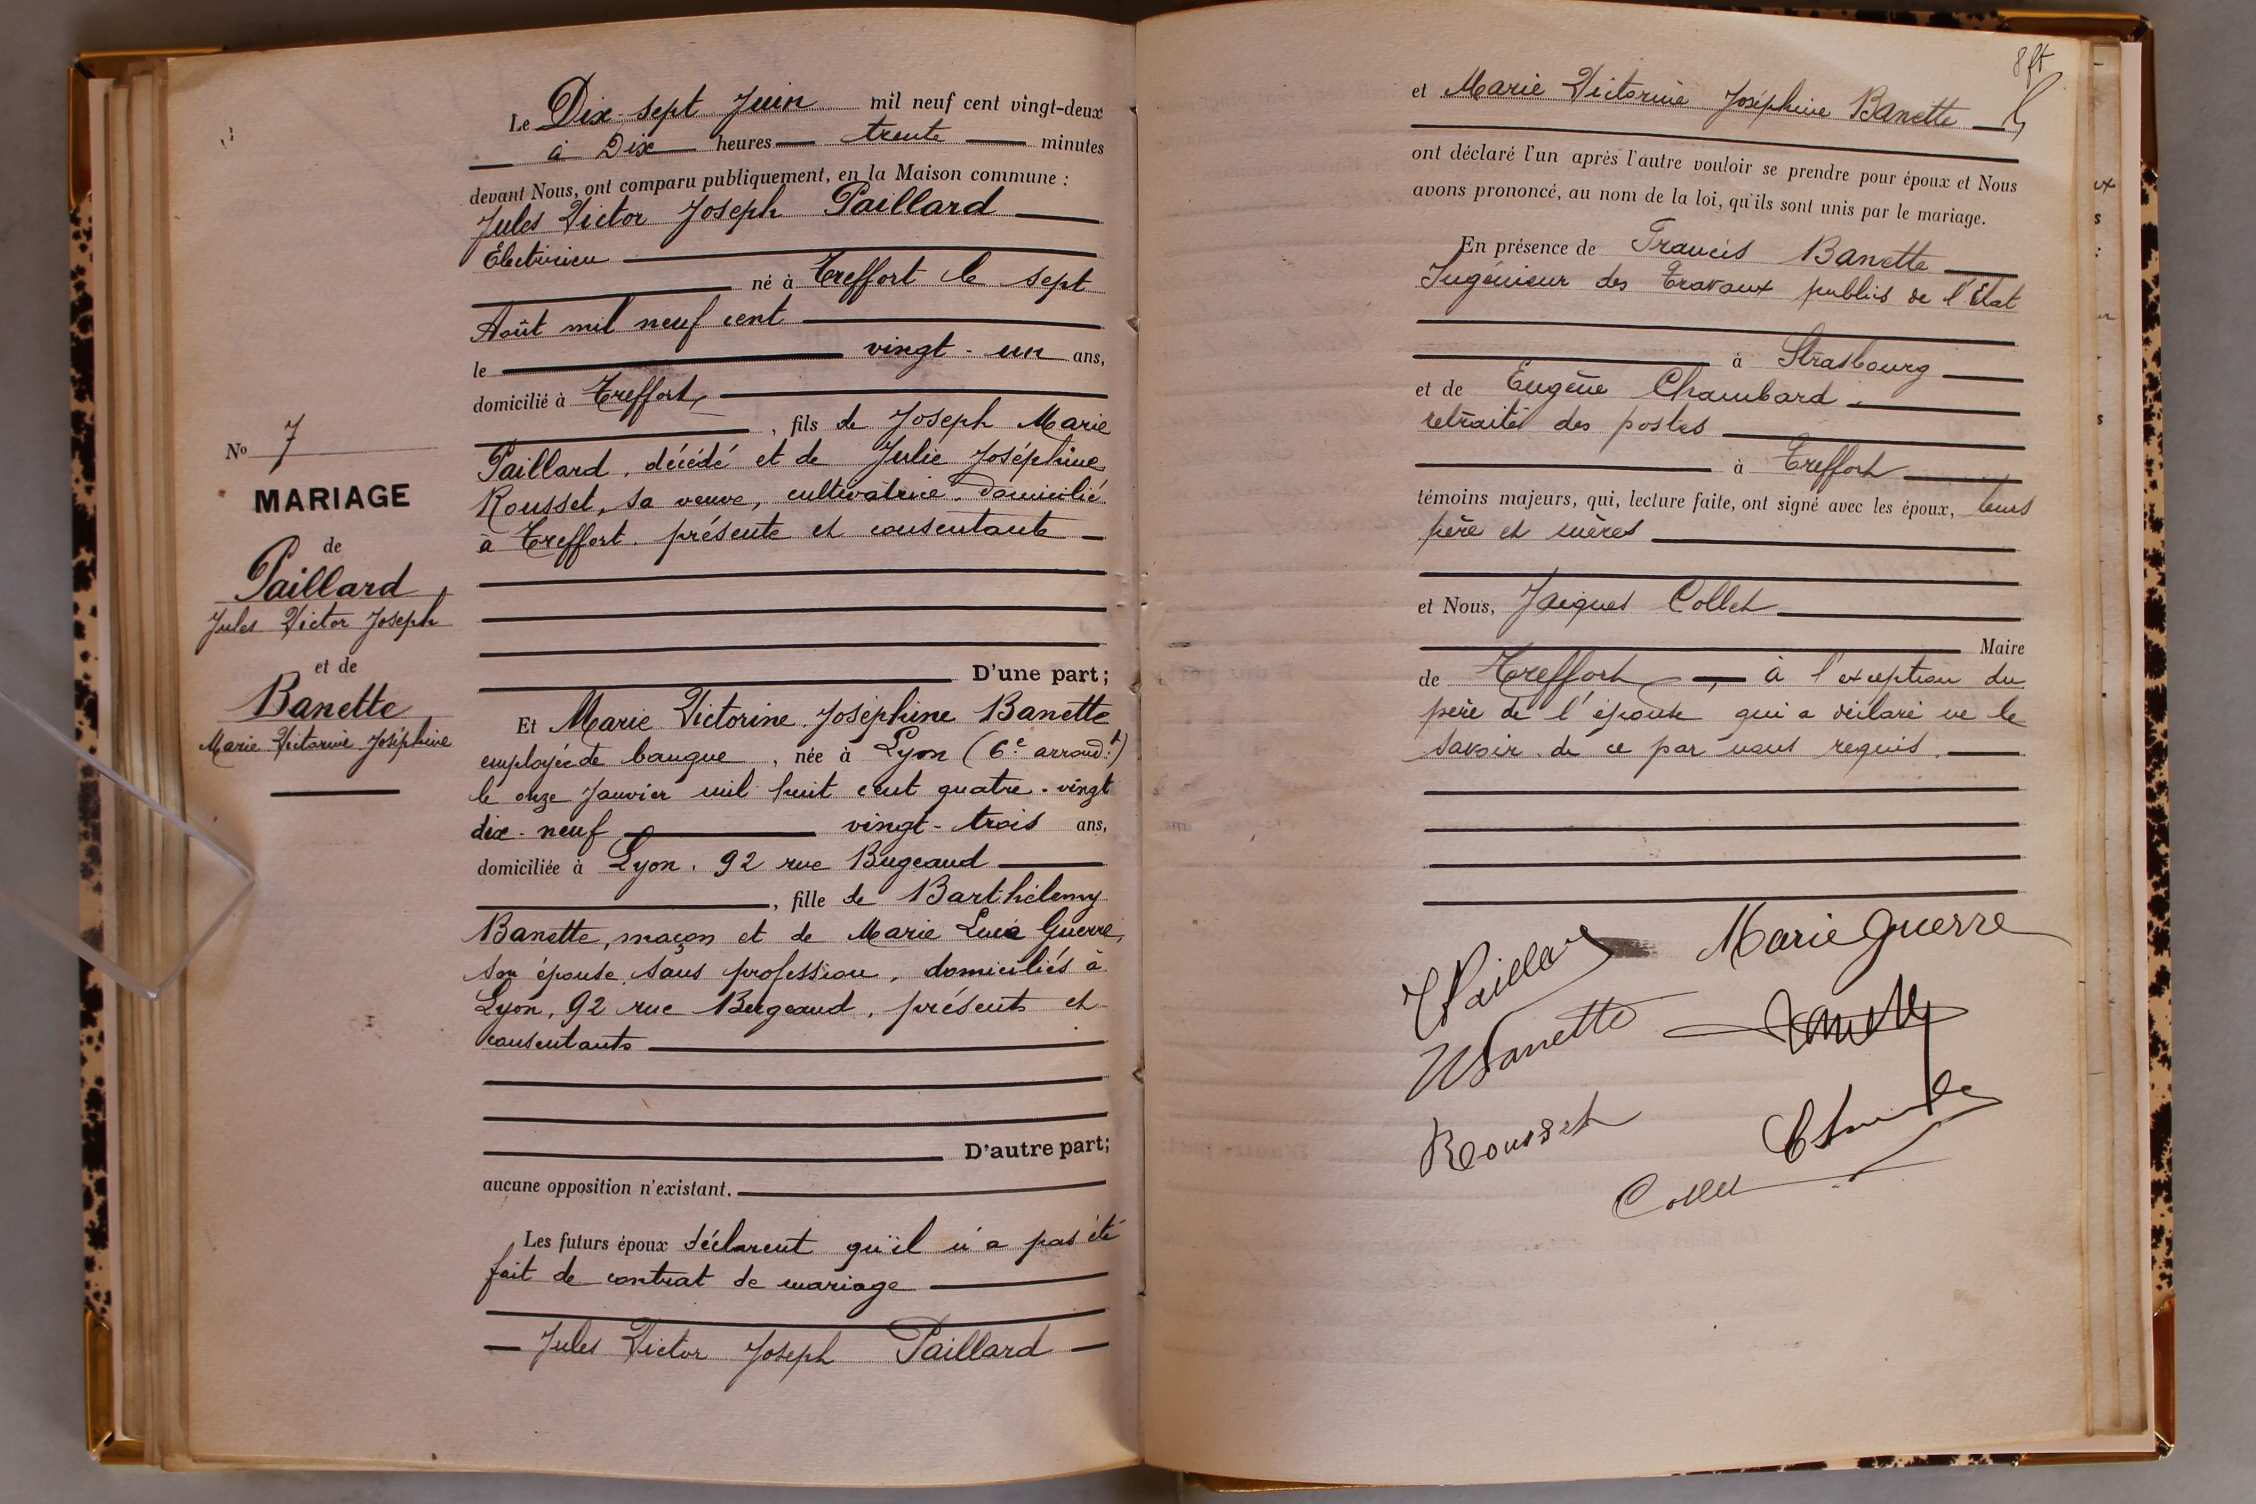 Nº 7
MARIAGE
de
Paillard
Jules Victor Joseph
et de
Banette
Marie Victorine Joséphine
Le Dix-sept Juin mil neuf cent vingt-deux
à Dix heures trente minutes
devant Nous, ont comparu publiquement, en la Maison commune :
Jules Victor Joseph Paillard
Électricien
né à Treffort le sept
Août mil neuf cent
le vingt-un ans,
domicilié à Treffort,
, fils de Joseph Marie
Paillard, décédé et de Julie Joséphine
Rousset, sa veuve, cultivatrice, domicilié
à Treffort. présente et consentante
D'une part;
Et Marie Victorine Joséphine Banette
employée de banque, née à Lyon (6e arrondt)
le onze Janvier mil huit cent quatre-vingt
dix-neuf vingt-trois ans,
domiciliée à Lyon, 92 rue Bugeaud
, fille de Barthélemy
Banette, maçon et de Marie Guerre,
son épouse, sans profession, domiciliés à
Lyon, 92 rue Bugeaud, présents et
consentants
D'autre part;
aucune opposition n'existant.
Les futurs époux déclarent qu'il n'a pas été
fait de contrat de mariage
Jules Victor Joseph Paillard
8 ft
et Marie Victorine Joséphine Banette
ont déclaré l'un après l'autre vouloir se prendre pour époux et Nous
avons prononcé, au nom de la loi, qu'ils sont unis par le mariage.
En présence de Francis Banette
Ingénieur des Travaux publics de l'Etat
à Strasbourg
et de Eugène Chambard,
retraité des postes
à Treffort
témoins majeurs, qui, lecture faite, ont signé avec les époux, leurs
père et mères
et Nous, Jacques Collet
Maire
de Treffort, à l'exception du
père de l'épouse qui a déclaré ne le
savoir de ce par nous requis.
JPaillard
Marie Guerre
MBanette
Rousset
Collet